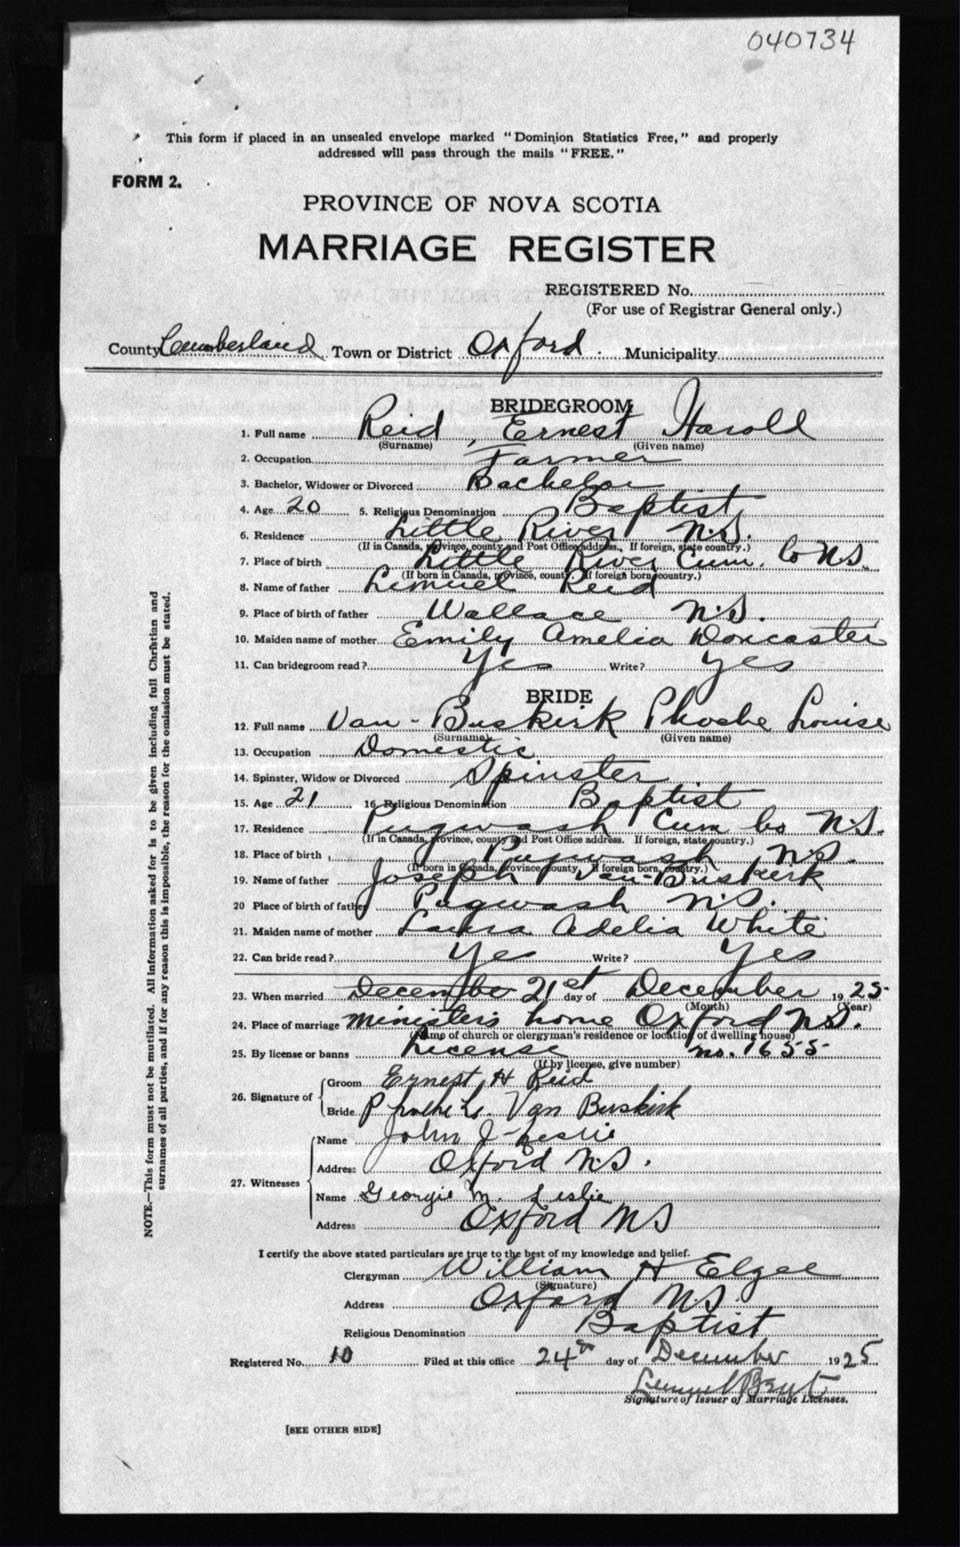 040734
This form if placed in an unsealed envelope marked "Dominion Statistics Free," and properly
addressed will pass through the mails "FREE."
FORM 2.
PROVINCE OF NOVA SCOTIA
MARRIAGE REGISTER
REGISTERED No.
(For use of Registrar General only.)
County Cumberland Town or District Oxford Municipality
BRIDEGROOM
1. Full name Reid, Ernest Harold
(Surname) (Given name)
2. Occupation Farmer
3. Bachelor, Widower or Divorced Bachelor
4. Age 20 5. Religious Denomination Baptist
6. Residence Little River N.S.
(If in Canada, province, county and Post Office address. If foreign, state country.)
7. Place of birth Little River Cum. Co N.S.
(If born in Canada, province, county. If foreign born, country.)
8. Name of father Lemuel Reid
9. Place of birth of father Wallace N.S.
10. Maiden name of mother Emily Amelia Doncaster
11. Can bridegroom read? Yes Write? Yes
BRIDE
12. Full name Van-Buskirk Phoebe Louise
(Surname) (Given name)
13. Occupation Domestic
14. Spinster, Widow or Divorced Spinster
15. Age 21 16. Religious Denomination Baptist
17. Residence Pugwash Cum Co N.S.
(If in Canada, province, county and Post Office address. If foreign, state country.)
18. Place of birth Pugwash N.S.
(If born in Canada, province, county, If foreign born, country.)
19. Name of father Joseph Van-Buskirk
20 Place of birth of father Pugwash N.S.
21. Maiden name of mother Laura Adelia White
22. Can bride read? Yes Write? Yes
23. When married December 21st day of December 1925
(Month) (Year)
24. Place of marriage ministers home Oxford N.S.
(Name of church or clergyman's residence or location of dwelling house)
25. By license or banns License no. 1655
(If by license, give number)
26. Signature of
Groom Ernest H Reid
Bride Phoebe L. Van Buskirk
27. Witnesses
Name John J. Leslie
Address Oxford N.S.
Name Georgie M. Leslie
Address Oxford N S
I certify the above stated particulars are true to the best of my knowledge and belief.
Clergyman William H Elgee
(Signature)
Address Oxford N.S.
Religious Denomination Baptist
Registered No. 10 Filed at this office 24th day of December 1925
Signature of Issuer of Marriage Licenses.
[SEE OTHER SIDE]
NOTE.—This form must not be mutilated. All information asked for is to be given including full Christian and
surnames of all parties, and if for any reason this is impossible, the reason for the omission must be stated.